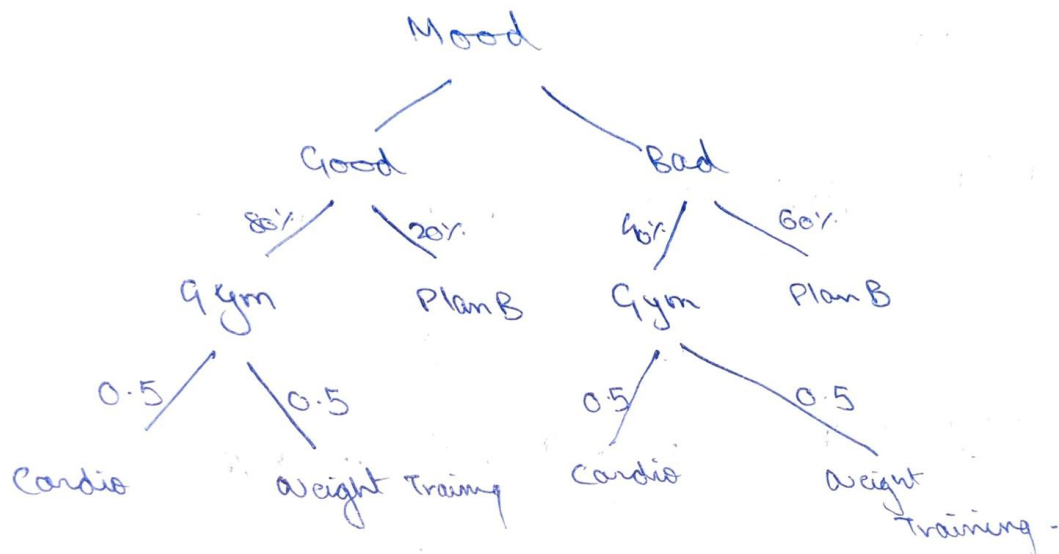 Mood
Good Bad
80% 20% 40% 60%
Gym Plan B Gym Plan B
0.5 0.5 0.5 0.5
Cardio Weight Training Cardio Weight
Training